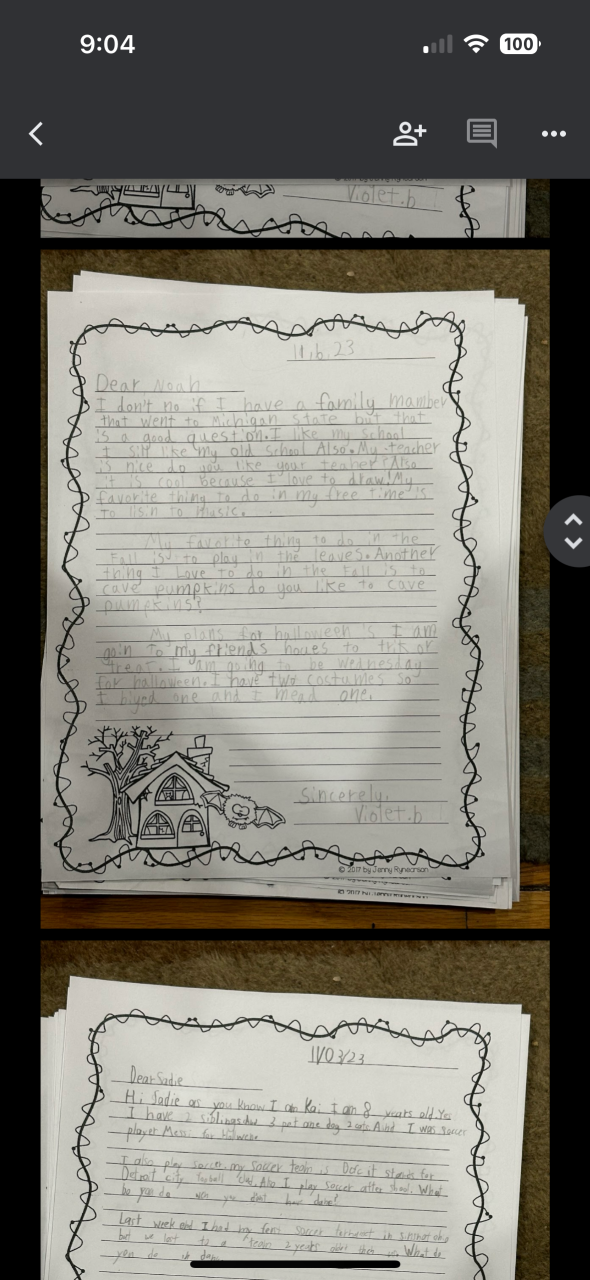 9:04
100
Violet.b
11.6.23
Dear Noah
I don't no if I have a family mamber
that went to Michigan State but that
is a good question. I like my school
I sitl like my old school Also. My teacher
is nice do you like your teaher? Also
it is cool because I love to draw! My
favorite thing to do in my free time is
to lisin to music.
My favorito thing to do in the
Fall is to play in the leaves. Another
thing I Love to do in the Fall is to
cave pumpkins do you like to cave
pumpkins?
My plans for halloween is I am
goin To my friends houes to trik or
treat. I am going to be Wednesday
for halloween. I have two costumes so
I biyed one and I mead one.
Sincerely,
Violet.b
© 2017 by Jenny Rynearson
Dear Sadie
Hi Sadie as you know I am Kai I am 8 years old. Yes
I have 2 siblings 3 pet one dog 2 cats. And I was soccer
player Messi for
I also play soccer my soccer team is Dcfc it stands for
Detroit city I play soccer after What
do you do you
Last week I had my soccer in
but we lost to a team 2 years What do
you do